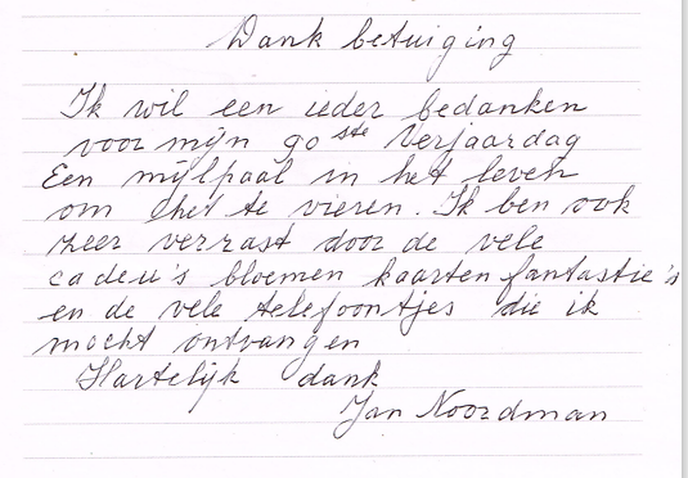 Dank betuiging
Ik wil een ieder bedanken
voor mijn 90 ste Verjaardag
Een mijlpaal in het leven
om het te vieren. Ik ben ook
zeer verrast door de vele
cadeu's bloemen kaarten fantastie's
en de vele telefoontjes die ik
mocht ontvangen
Hartelijk dank
Jan Noordman